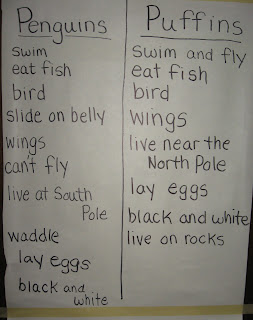 Penguins
swim
eat fish
bird
slide on belly
wings
can't fly
live at South
Pole
waddle
lay eggs
black and
white
Puffins
swim and fly
eat fish
bird
wings
live near the
North Pole
lay eggs
black and white
live on rocks